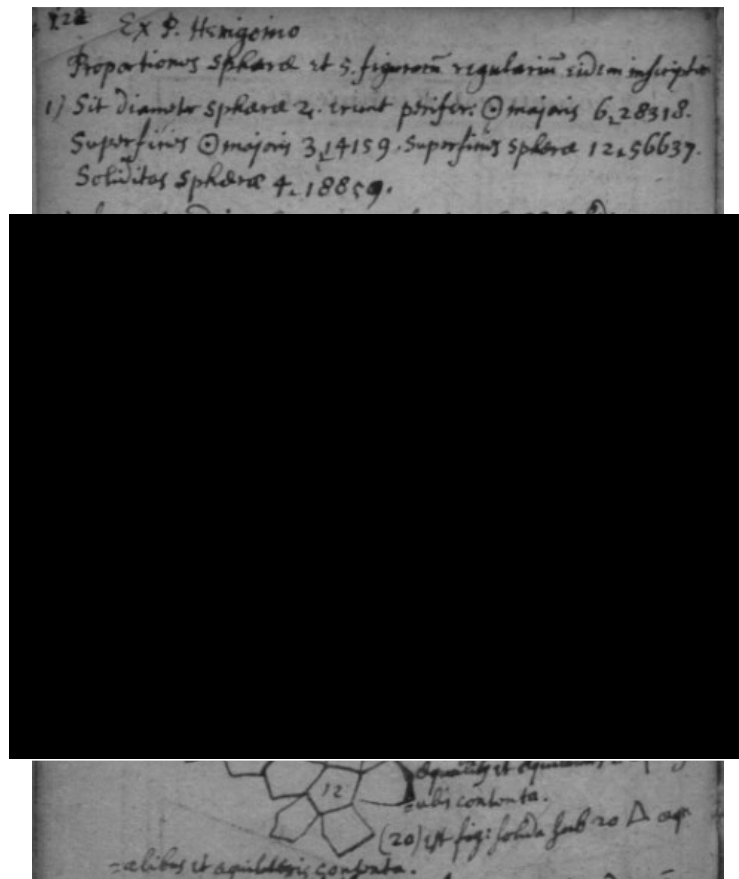 122
Ex P. Herigonio
Proportiones Sphæræ et 5. figurarū regulariū eidem inscriptæ
1) Sit diameter sphæræ 2. erunt perifer. ⊙ majoris 6,28318.
Superficies ⊙ majoris 3,14159. Superficies sphæræ 12,56637.
Soliditas Sphæræ 4,18859.
12
contenta.
(20) est fig: solida sub 20 Δ æqu
=alibus et æquilateris contenta.